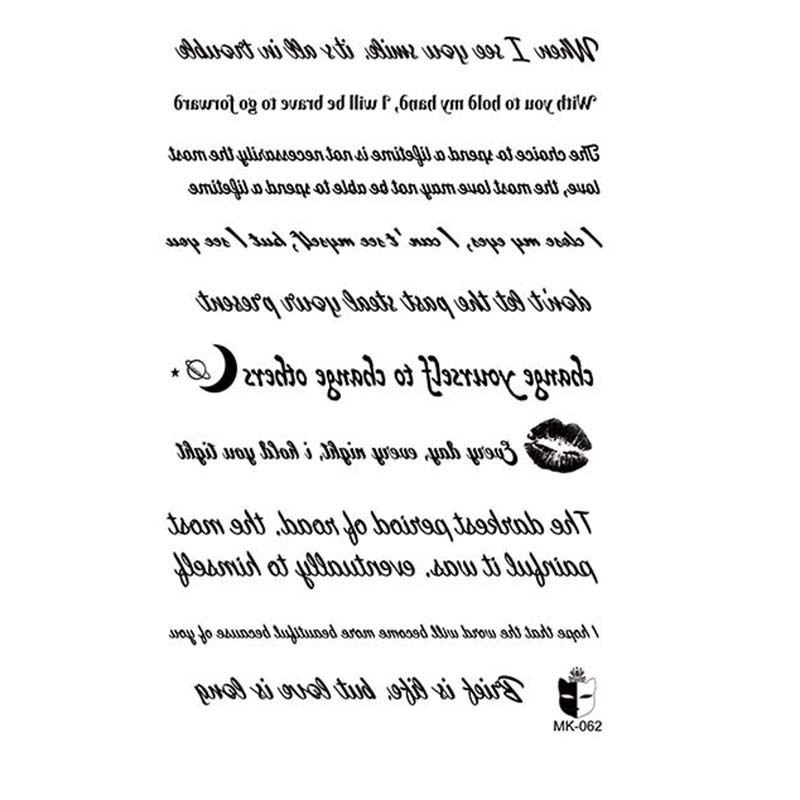 When I see you smile, it's all in trouble
With you to hold my hand, I will be brave to go forward
The choice to spend a lifetime is not necessarily the most
love, the most love may not be able to spend a lifetime
I close my eyes, I can't see myself, but I see you
don't let the past steal your present
change yourself to change others
Every day, every night, i hold you tight
The darkest period of road, the most
painful it was, eventually to himself
I hope that the word will become more beautiful because of you
Brief is life, but love is long
MK-062